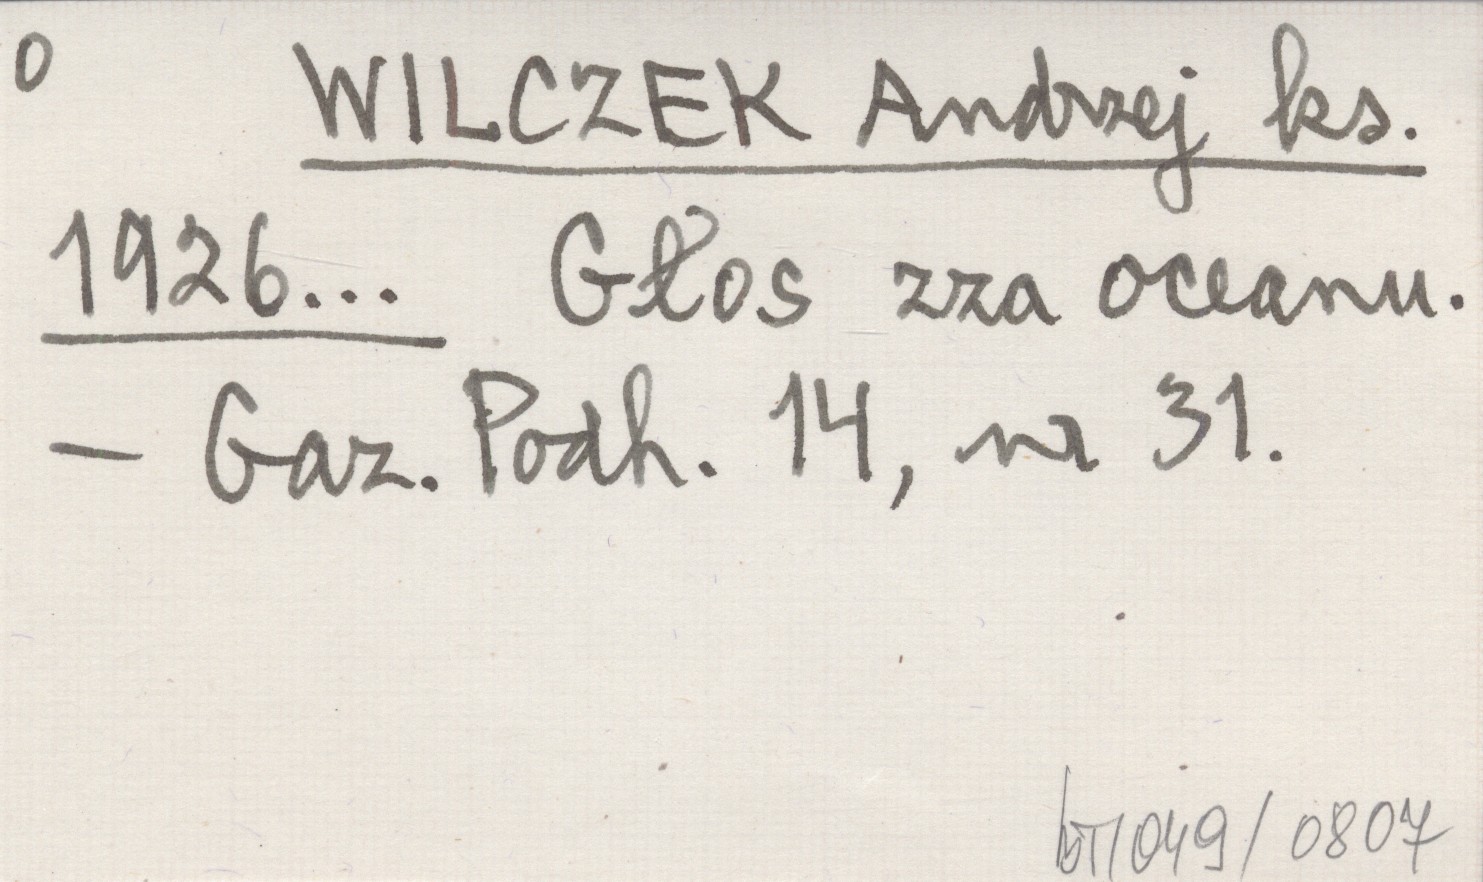 0 WILCZEK Andrzej ks.
1926... Głos zza oceanu.
— Gaz. Podh. 14, nr 31.
bT/049/0807